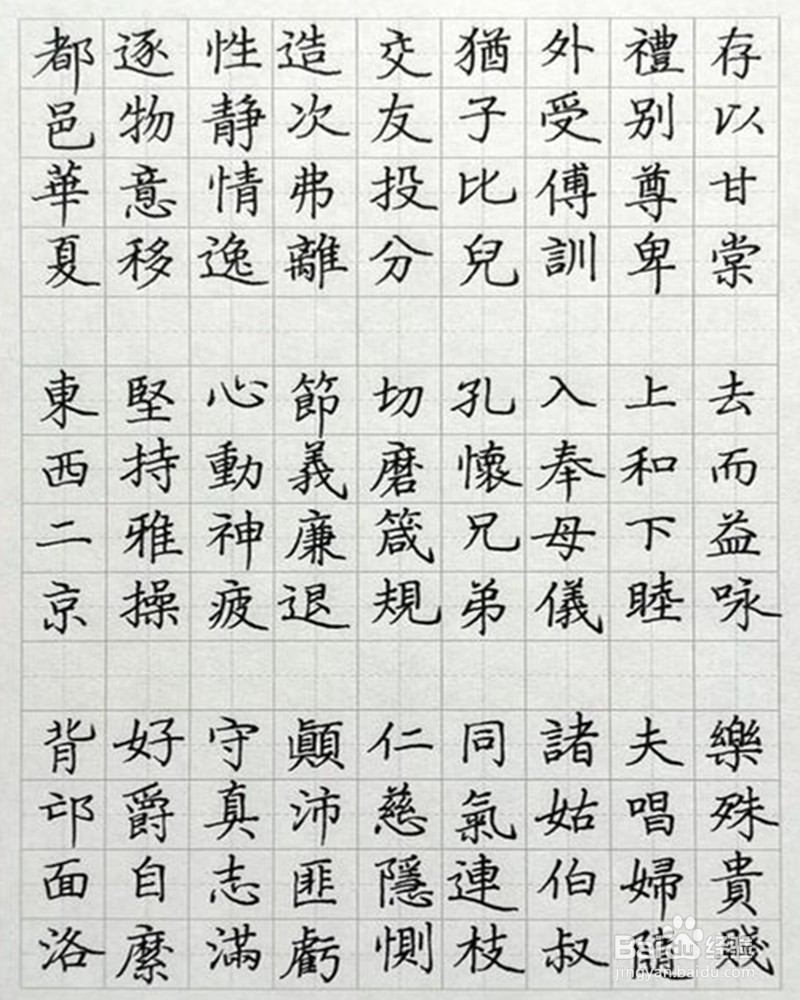 存以甘棠 去而益咏 樂殊貴賤
禮别尊卑 上和下睦 夫唱婦隨
外受傅訓 入奉母儀 諸姑伯叔
猶子比兒 孔懷兄弟 同氣連枝
交友投分 切磨箴規 仁慈隱惻
造次弗離 節義廉退 顛沛匪虧
性静情逸 心動神疲 守真志滿
逐物意移 堅持雅操 好爵自縻
都邑華夏 東西二京 背邙面洛
Baidu 经验
jingyan.baidu.com